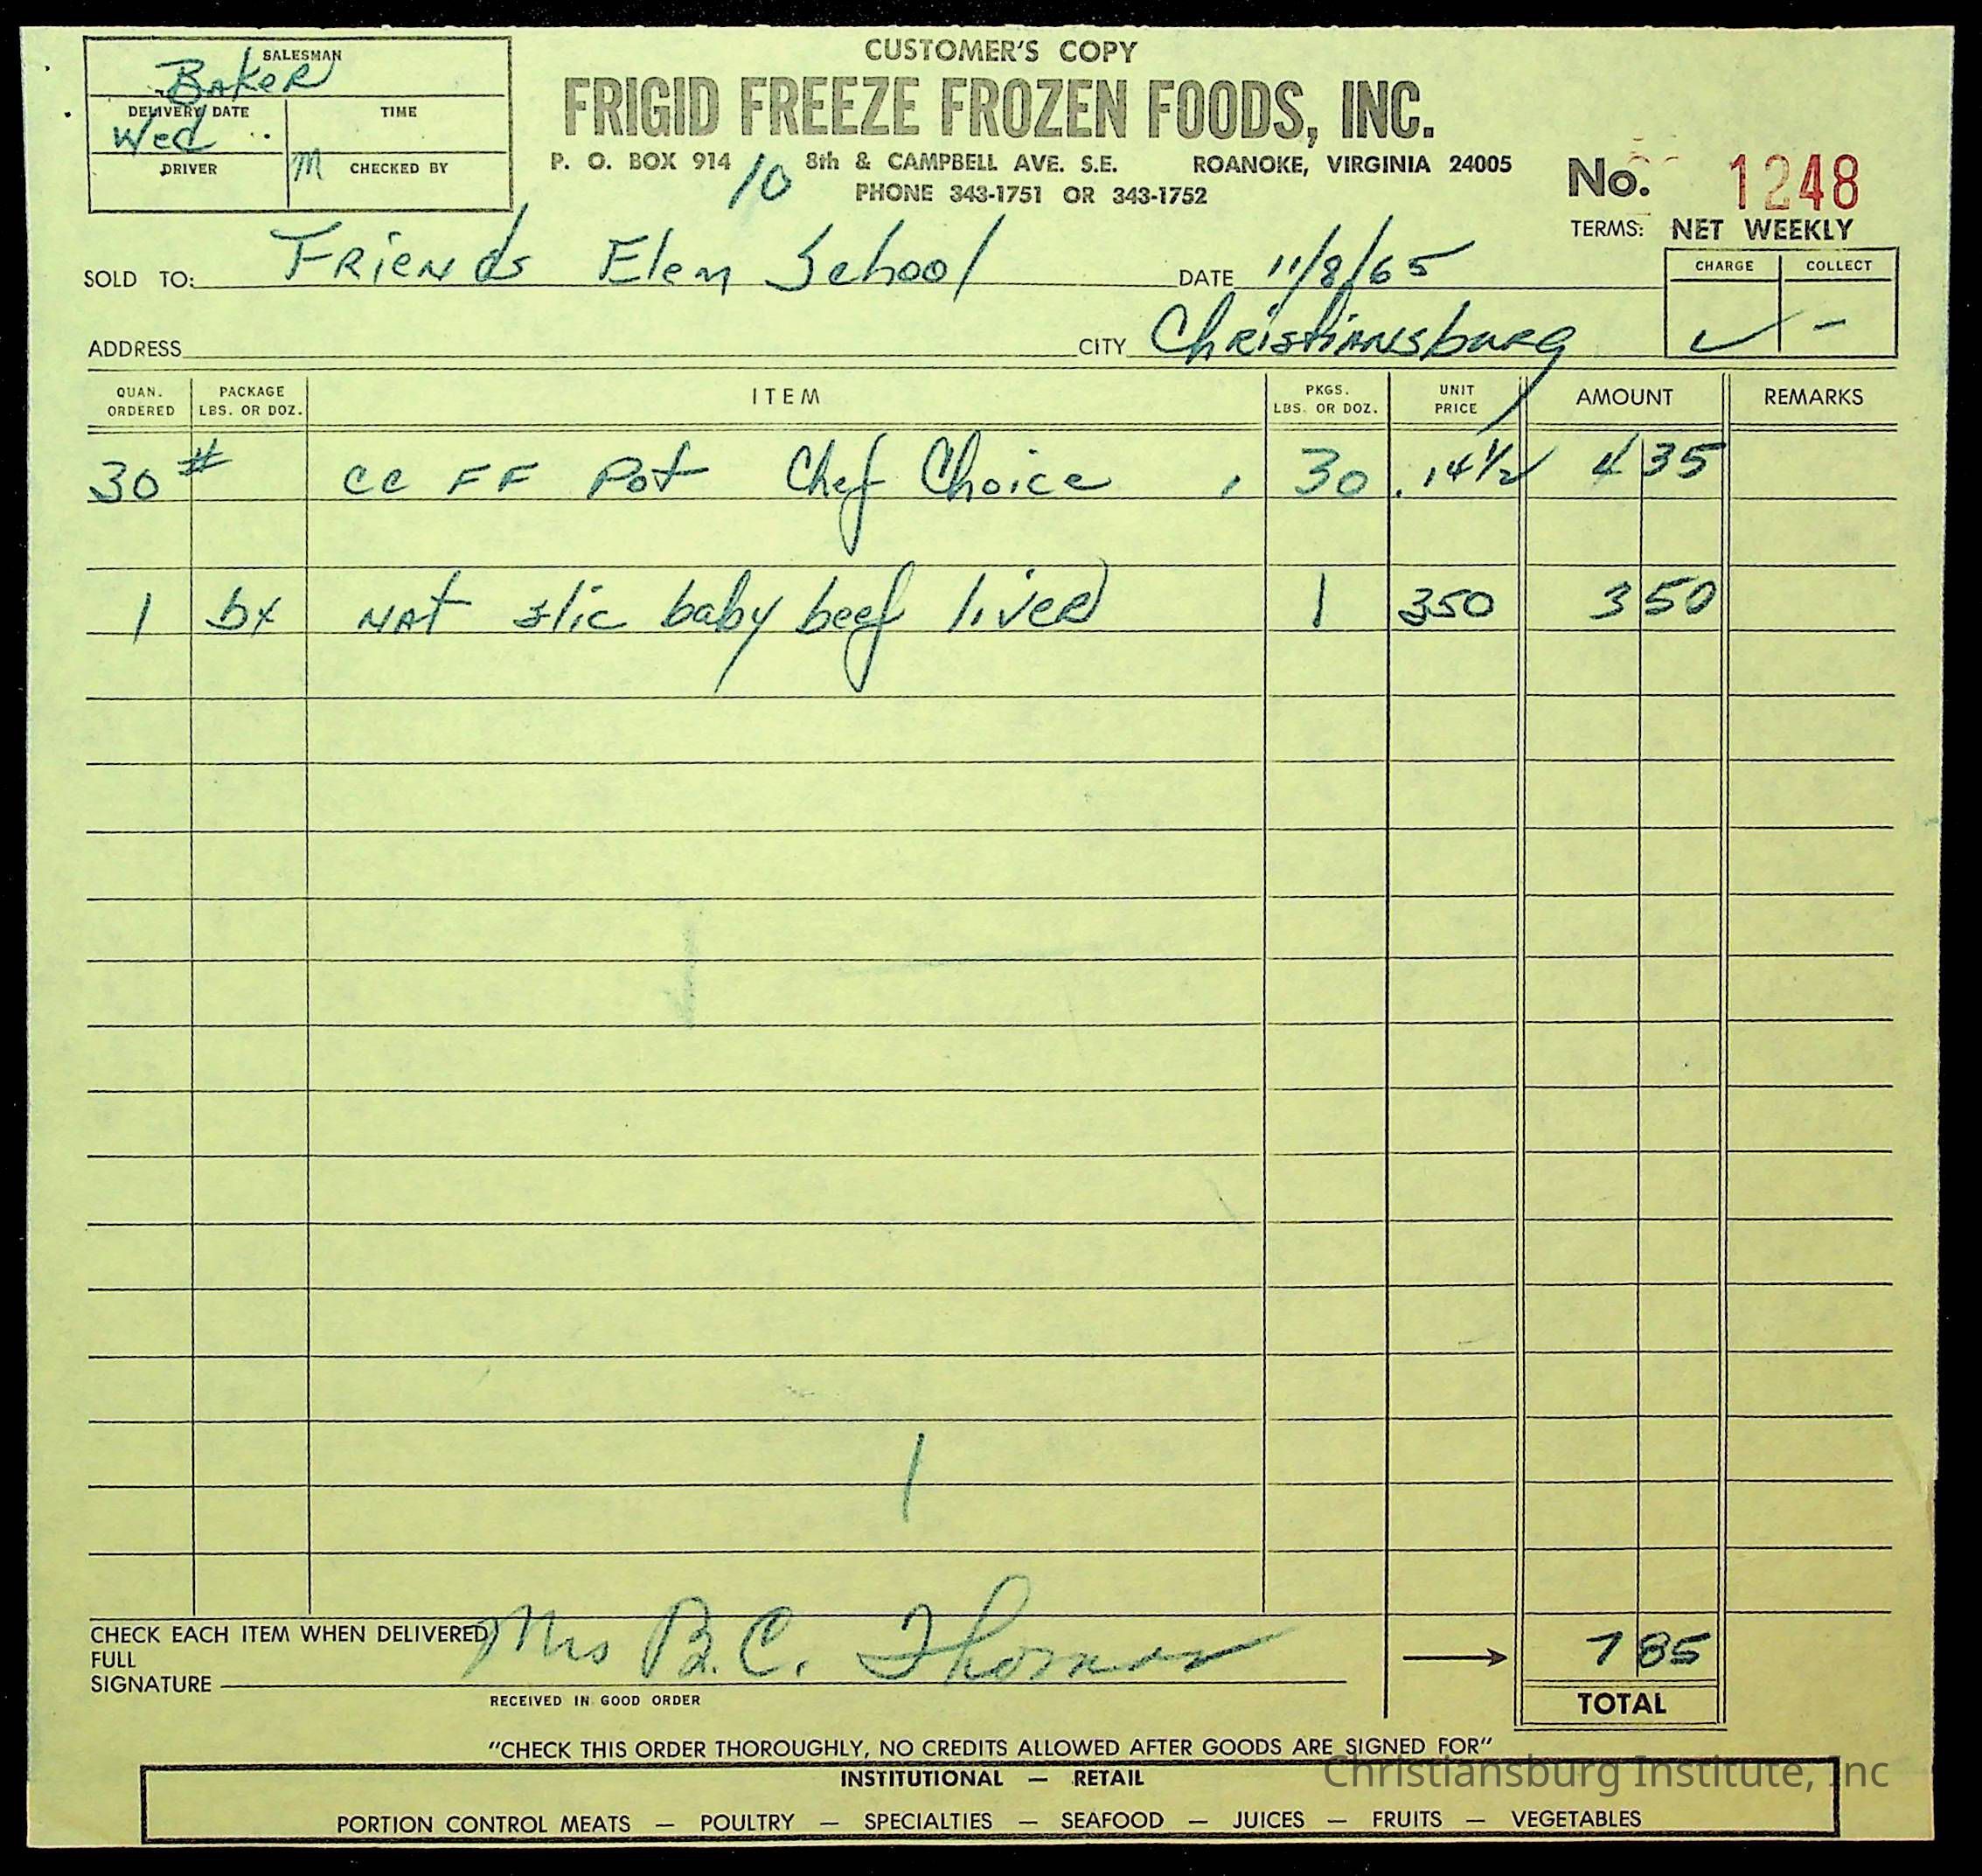 SALESMAN
Baker
DELIVERY DATE TIME
Wed
DRIVER M CHECKED BY
CUSTOMER'S COPY
FRIGID FREEZE FROZEN FOODS, INC.
P. O. BOX 914 8th & CAMPBELL AVE. S.E. ROANOKE, VIRGINIA 24005
10 PHONE 343-1751 OR 343-1752
No. 1248
TERMS: NET WEEKLY
SOLD TO: Friends Elem School DATE 11/8/65
CHARGE COLLECT
ADDRESS CITY Christiansburg ✓ -
QUAN. ORDERED PACKAGE LBS. OR DOZ. ITEM PKGS. LBS. OR DOZ. UNIT PRICE AMOUNT REMARKS
30 # cc FF Pot Chef Choice 30 .14½ 4 35
1 bx NAT slic baby beef liver 1 350 3 50
CHECK EACH ITEM WHEN DELIVERED
FULL
SIGNATURE Mrs B.C. Thomas
7 85
RECEIVED IN GOOD ORDER
TOTAL
"CHECK THIS ORDER THOROUGHLY, NO CREDITS ALLOWED AFTER GOODS ARE SIGNED FOR"
INSTITUTIONAL — RETAIL
Christiansburg Institute, Inc
PORTION CONTROL MEATS — POULTRY — SPECIALTIES — SEAFOOD — JUICES — FRUITS — VEGETABLES